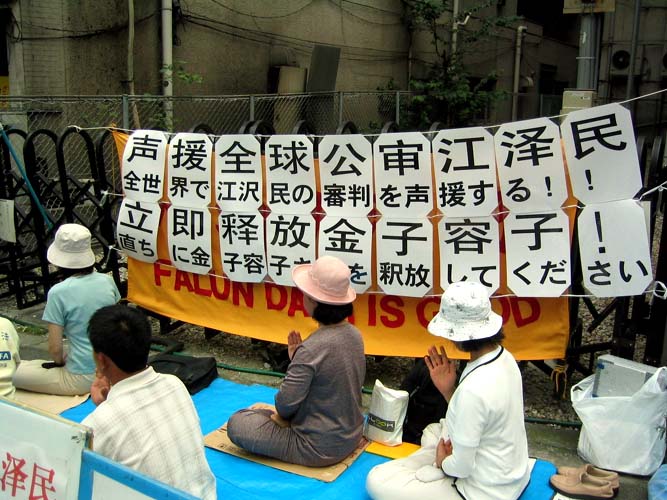 声援全球公审江泽民!
全世界で江沢民の審判を声援する!!
立即释放金子容子!
直ちに金子容子さを釈放してください
FALUN DA IS GOOD
泽民